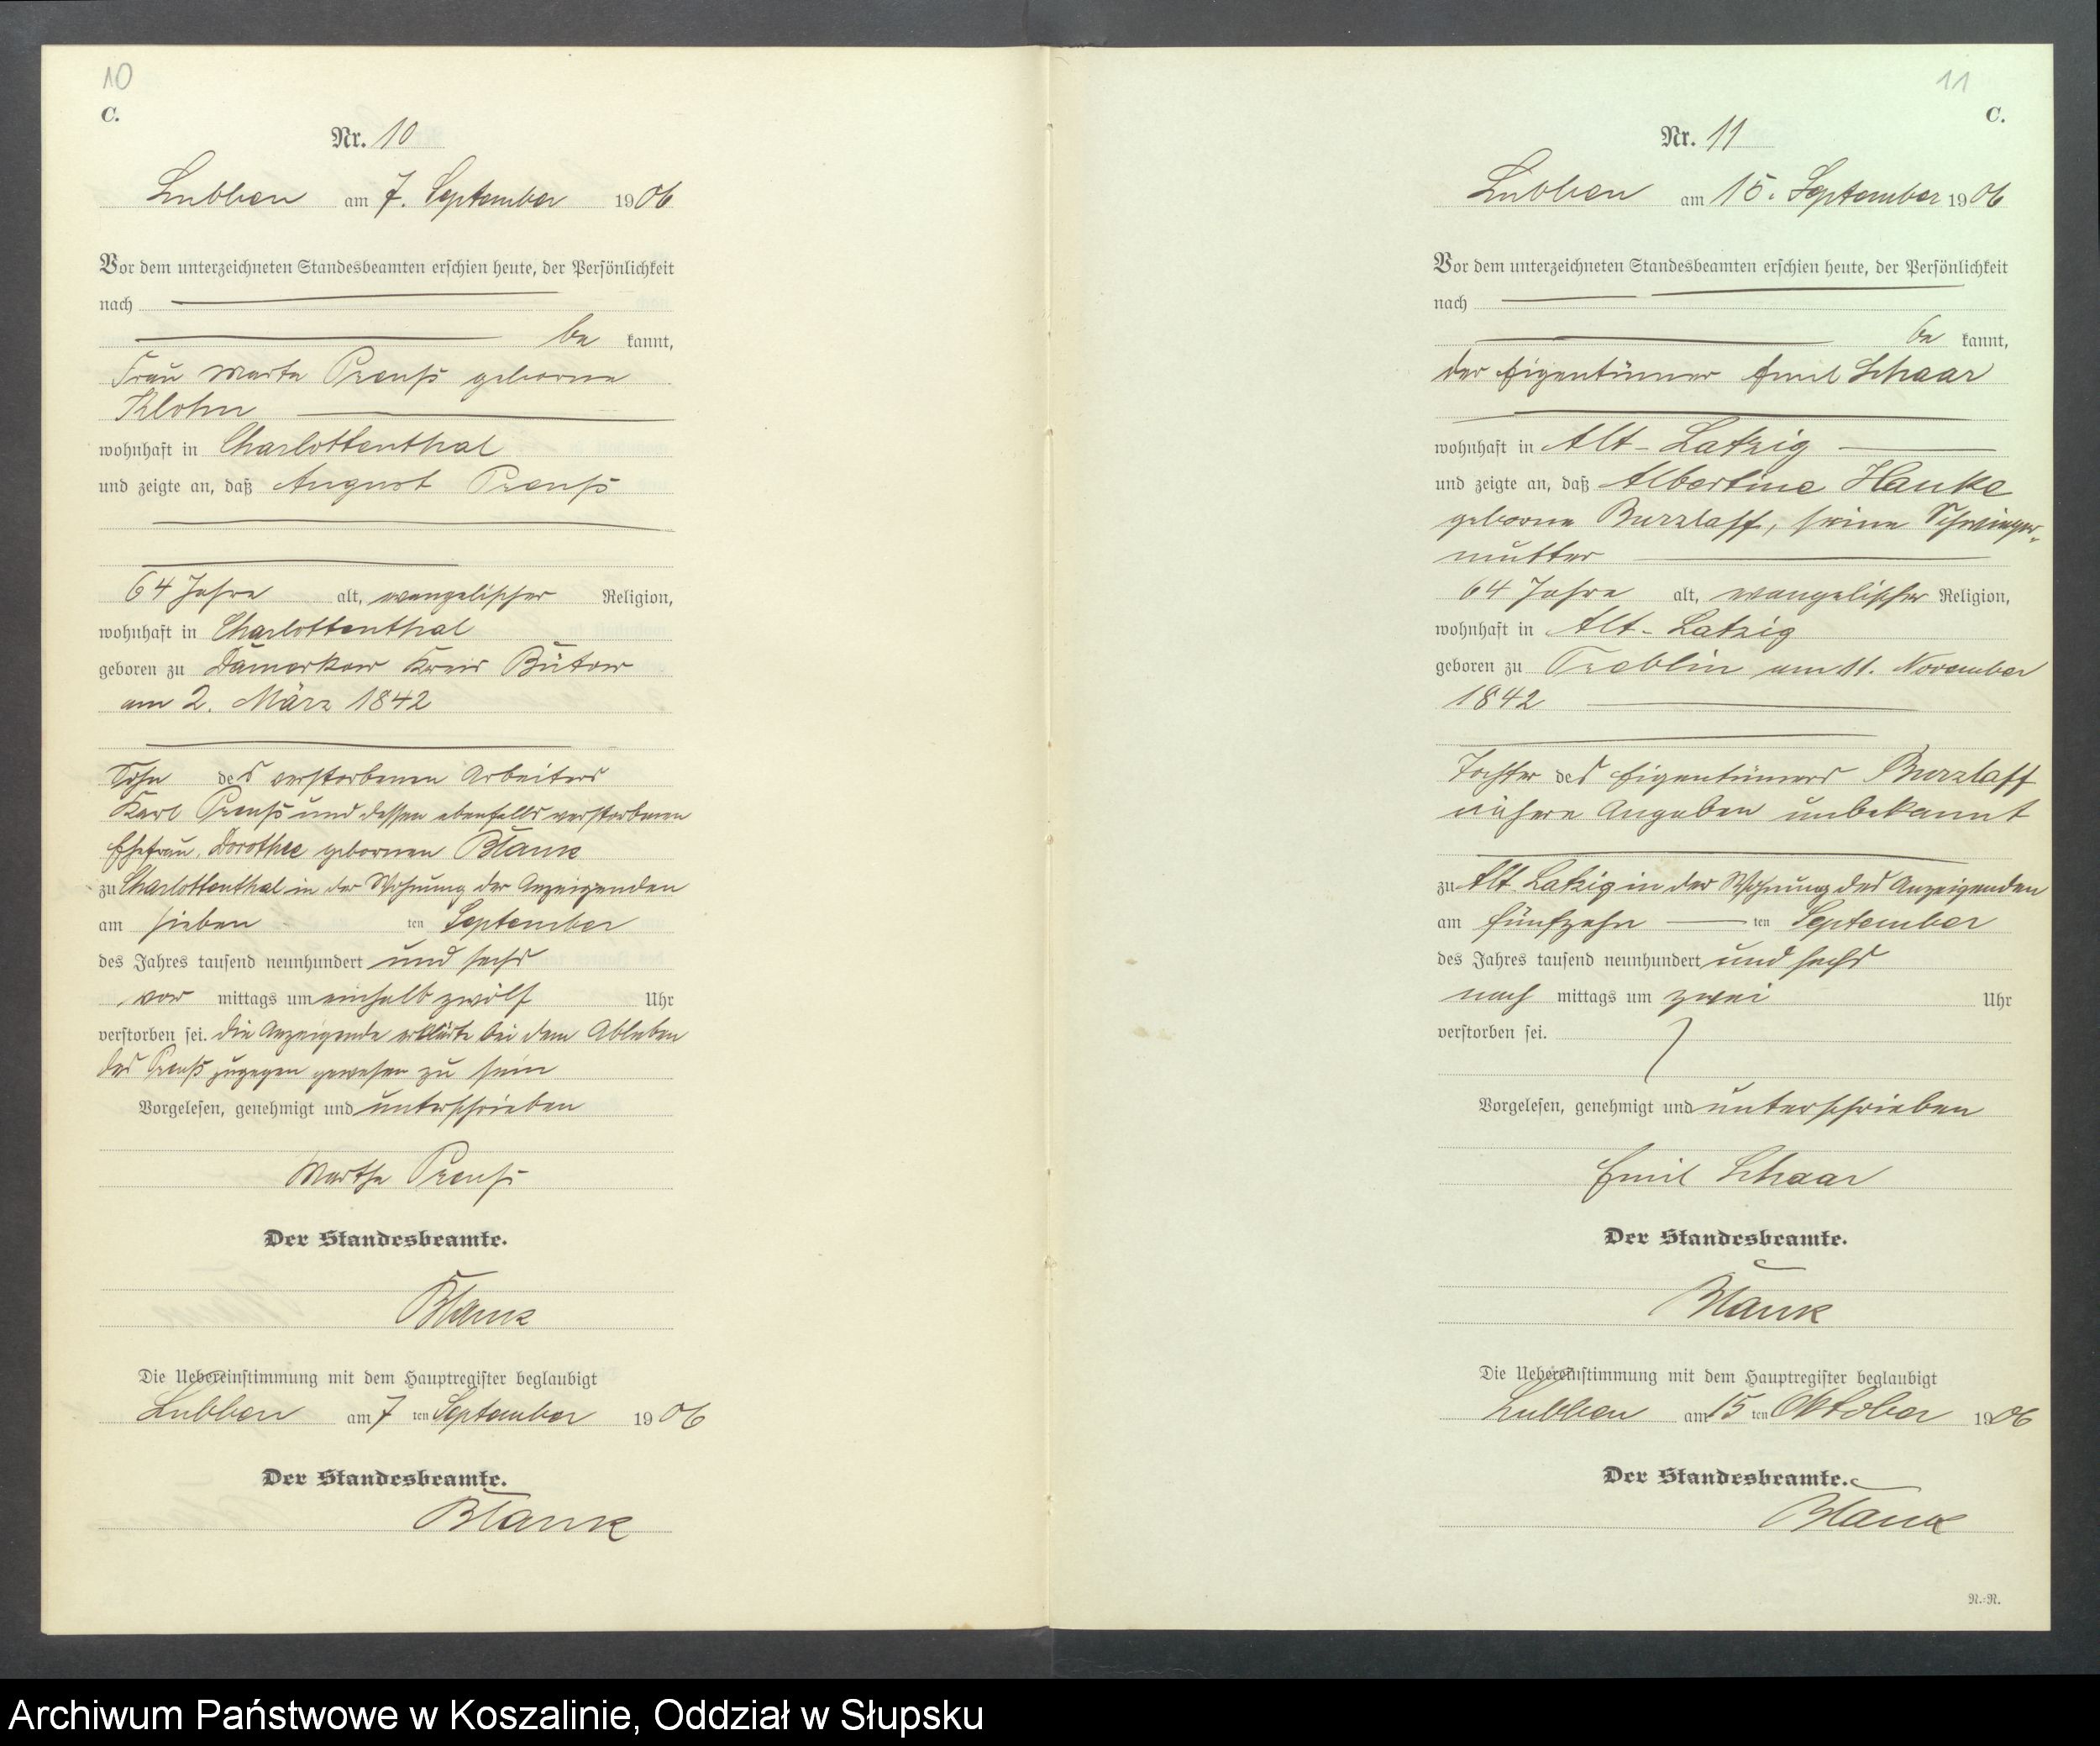 10
C.
Nr. 10
Lubben am 7. September 1906
Vor dem unterzeichneten Standesbeamten erschien heute, der Persönlichkeit
nach
be kannt,
Frau Marta Preuß geborne
Klohn
wohnhaft in Charlottenthal
und zeigte an, daß August Preuß
64 Jahre alt, evangelischer Religion,
wohnhaft in Charlottenthal
geboren zu Damerkow Kreis Bütow
am 2. März 1842
Sohn des verstorbenen Arbeiters
Karl Preuß und dessen ebenfalls verstorbenen
Ehefrau, Dorothee gebornen Blank
zu Charlottenthal in der Wohnung der Anzeigenden
am sieben ten September
des Jahres tausend neunhundert und sechs
vor mittags um einhalb zwölf Uhr
verstorben sei. Die Anzeigende erklärte bei dem Ableben
des Preuß zugegen gewesen zu sein
Vorgelesen, genehmigt und unterschrieben
Martha Preuß
Der Standesbeamte.
Blank
Die Uebereinstimmung mit dem Hauptregister beglaubigt
Lubben am 7 ten September 1906
Der Standesbeamte.
Blank
11
C.
Nr. 11
Lubben am 15. September 1906
Vor dem unterzeichneten Standesbeamten erschien heute, der Persönlichkeit
nach
be kannt,
der Eigentümer Emil Schaar
wohnhaft in Alt-Latzig
und zeigte an, daß Albertine Hanke
geborne Burzlaff, seine Schwieger-
mutter
64 Jahre alt, evangelischer Religion,
wohnhaft in Alt-Latzig
geboren zu Treblin am 11. November
1842
Tochter des Eigentümers Burzlaff
nähere Angaben unbekannt
zu Alt Latzig in der Wohnung des Anzeigenden
am fünfzehn ten September
des Jahres tausend neunhundert und sechs
nach mittags um zwei Uhr
verstorben sei.
Vorgelesen, genehmigt und unterschrieben
Emil Schaar
Der Standesbeamte.
Blank
Die Uebereinstimmung mit dem Hauptregister beglaubigt
Lubben am 15 ten Oktober 1906
Der Standesbeamte.
Blank
N.-N.
Archiwum Państwowe w Koszalinie, Oddział w Słupsku